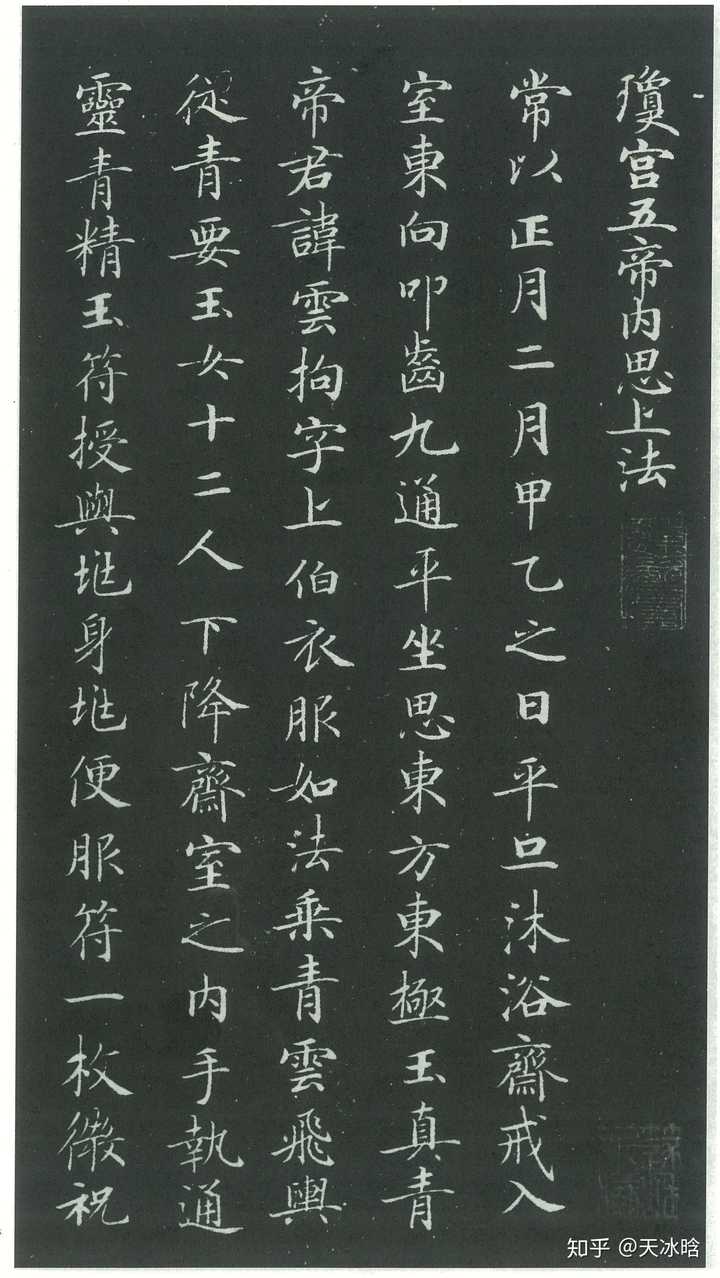 瓊宮五帝内思上法
常以正月二月甲乙之日平旦沐浴齋戒入
室東向叩齒九通平坐思東方東極玉真青
帝君諱雲拘字上伯衣服如法乗青雲飛輿
從青要玉女十二人下降齋室之内手執通
靈青精玉符授與垪身垪便服符一枚微祝
知乎 @天冰晗